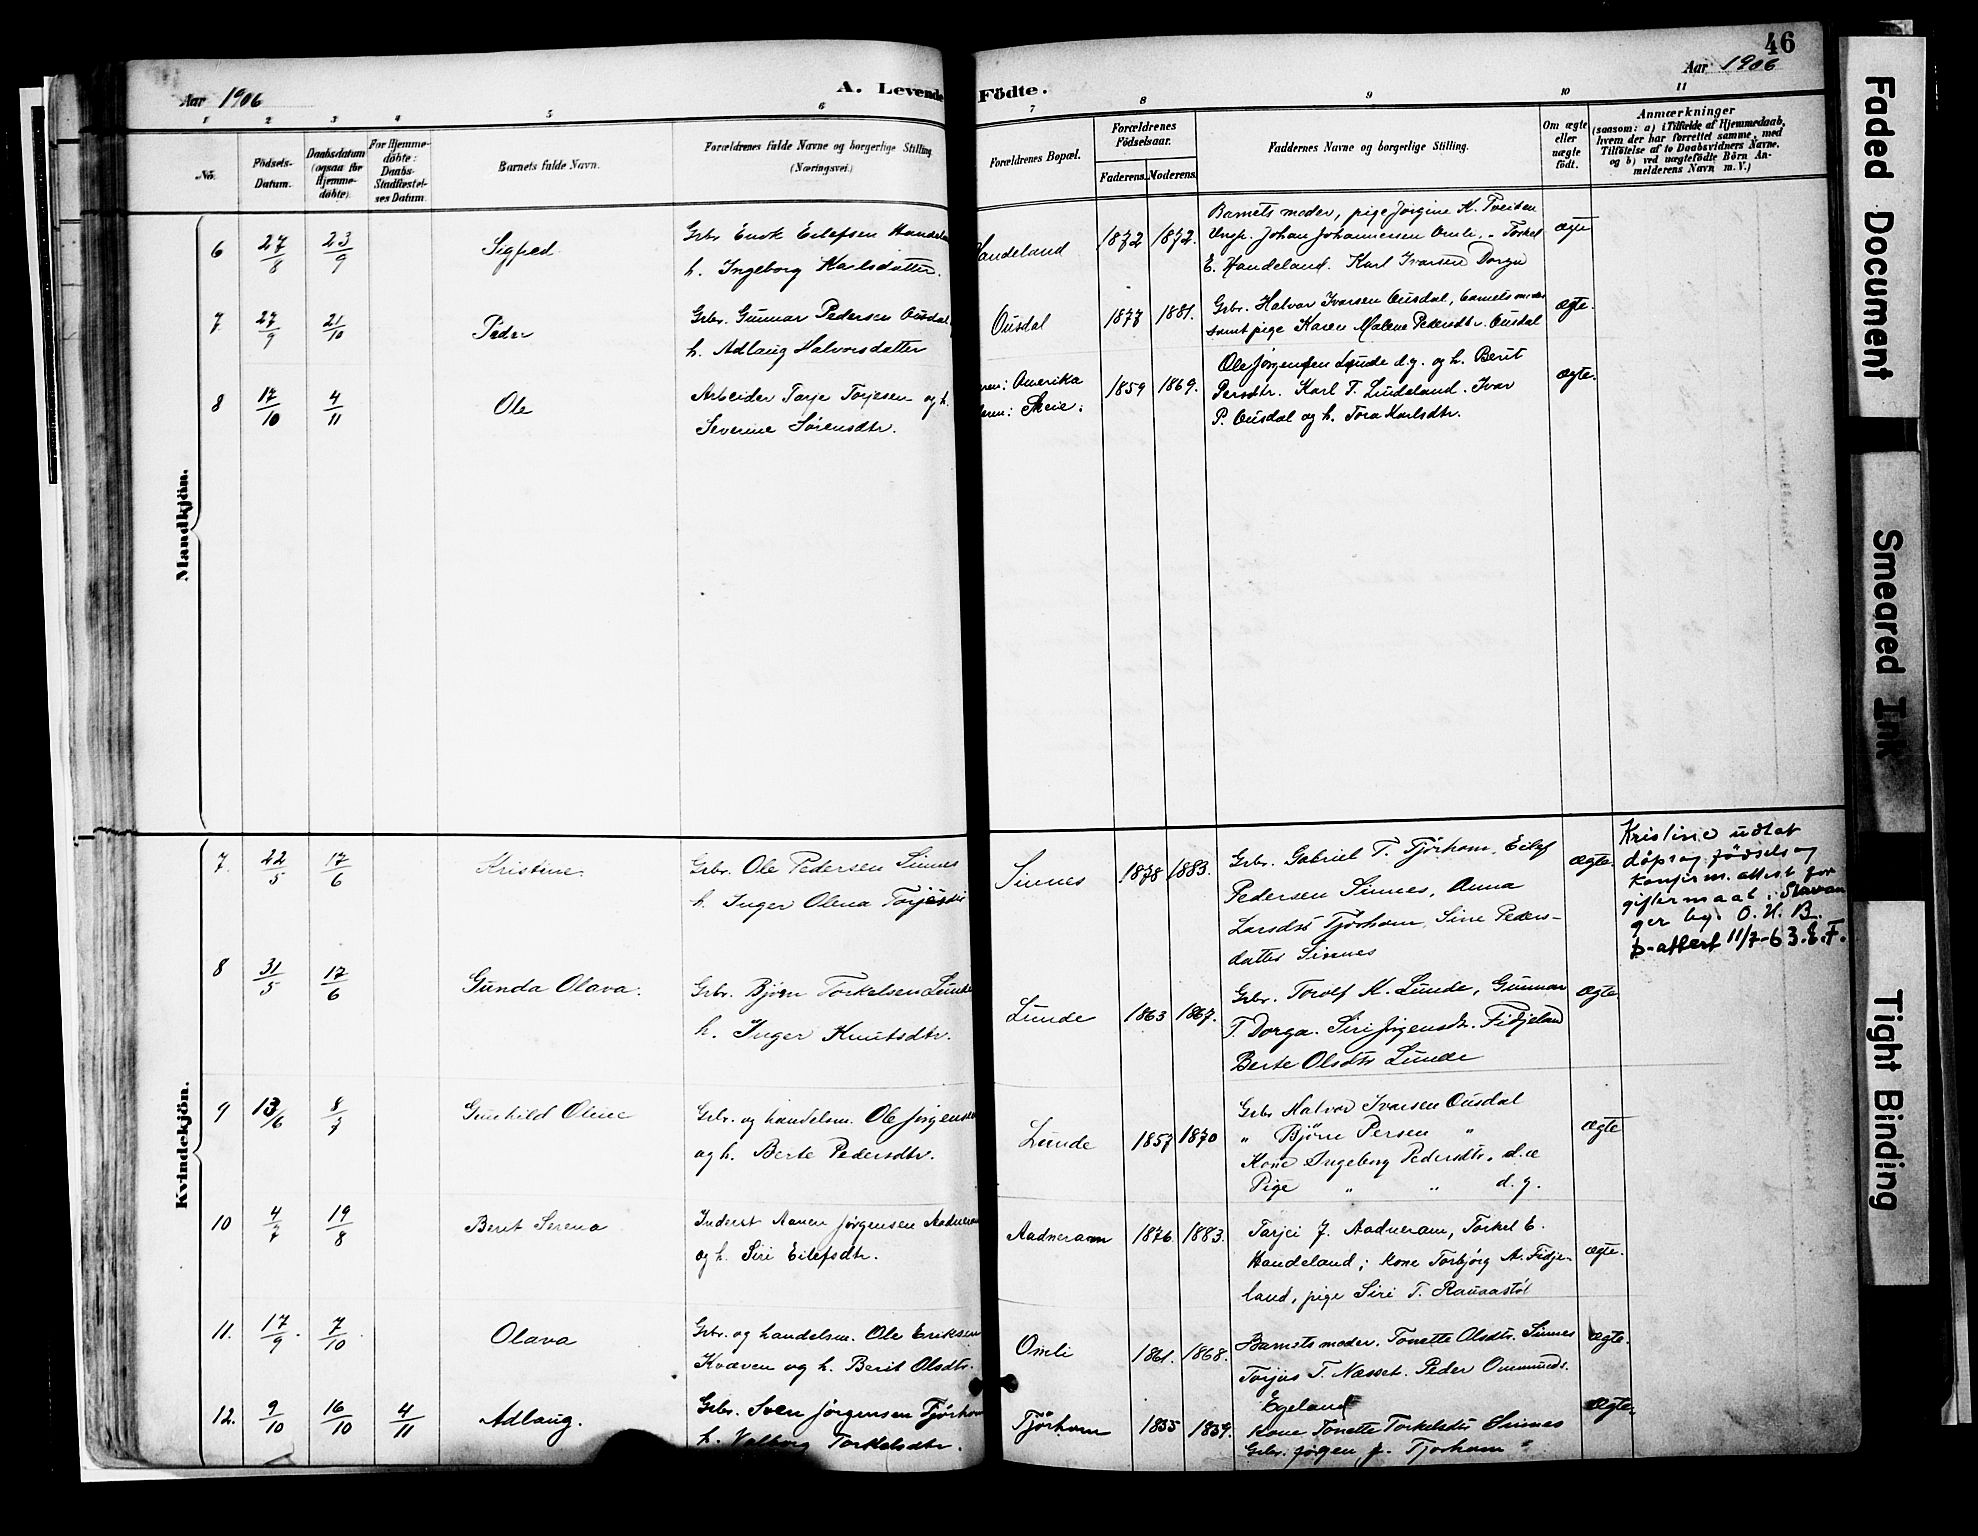 46
Aar 1906
A. Levende Födte.
Aar 1906
1 2 3 4 5 6 7 8 9 10 11
No.
Födsels-
Datum.
Daabsdatum
(ogsaa for
Hjemme-
döbte).
For Hjemme-
döbte:
Daabs-
Stadfæstel-
ses Datum.
Barnets fulde Navn.
Forældrenes fulde Navne og borgerlige Stilling
(Næringsvei.)
Forældrenes Bopæl.
Forældrenes
Födselsaar.
Faderens. Moderens.
Faddernes Navne og borgerlige Stilling.
Om ægte
eller
uægte
födt.
Anmærkninger
(saasom: a) i Tilfælde af Hjemmedaab,
hvem der har forrettet samme, med
Tilföielse af to Daabsvidners Navne,
og b) ved uægtefödte Börn An-
melderens Navn m. V.)
Mandkjön.
6 27/8 23/9 Sigfred
Grbr. Enok Eilefsen Handeland
h. Ingeborg Karlsdatter.
Handeland 1872 1872.
Barnets moder, pige Jørgine K. Tveiten
Ungk. Johan Johannessen Omli, Torkel
E. Handeland. Karl Ivarsen Dorga
ægte
7 27/9 21/10 Peder
Grbr. Gunnar Pedersen Ousdal
h. Adlaug Halvorsdatter
Ousdal 1877 1881.
Grbr. Halvor Ivarsen Ousdal, barnets moder
samt pige Karen Malene Pedersdtr. Ousdal
ægte.
8 17/10 4/11 Ole
Arbeider Tarje Torjesen og h.
Severine Sörensdtr.
ren: Amerika
eren: Skeie.
1859 1869.
Ole Jørgensen Lunde d.y. og h. Berit
Persdtr. Karl T. Lindeland. Ivar
P. Ousdal og h. Tora Karlsdtr.
ægte.
Kvindekjön.
7. 22/5 17/6 Kristine.
Grbr. Ole Pedersen Sinnes
h. Inger Olena Torjesdtr
Sinnes 1878 1883.
Grbr. Gabriel T. Tjörhom, Eilef
Pedersen Sinnes, Anna
Larsdtr Tjörhom, Sine Peders-
datter Sinnes
ægte.
Kristine udtat
dåps og fødsels og
konfirm. attest for
giftermaal i Stavan
ger by. O. H. B.
D-attest 11/7-63. E. F.
8 31/5 17/6 Gunda Olava.
Grbr. Björn Torkelsen Lunde
h. Inger Knutsdtr.
Lunde 1863 1867.
Grbr. Torolf K. Lunde, Gunnar
T. Dorga. Siri Jörgensdtr. Fidjeland
Berte Olsdtr Lunde
ægte
9 13/6 8/7 Gunhild Oline
Grbr. og handelsm. Ole Jørgensen
og h. Berte Pedersdtr.
Lunde 1857 1870
Grbr Halvor Ivarsen Ousdal
" Björn Persen "
Kone Ingeborg Pedersdtr. d.æ
Pige " " d. y.
ægte
10 4/7 19/8 Berit Serena
Inderst Aanen Jørgensen Aadneram
og h. Siri Eilefsdtr.
Aadneram 1876. 1883.
Tarjei J. Aadneram, Torkel E.
Handeland; kone Torbjörg A. Fidje-
land, pige Siri T. Rausastöl
ægte.
11. 17/9. 7/10 Olava
Grbr. og handelsm. Ole Eriksen
Kvæven og h. Berit Olsdtr.
Omli 1861. 1868.
Barnets moder. Tonette Olsdtr. Sinnes
Torjus T. Næsset. Peder Ommunds.
Egeland
ægte.
12. 9/10 16/10 4/11 Adlaug.
Grbr. Sven Jørgensen Tjörhom
h. Valborg Torkelsdtr.
Tjörhom 1855 1859.
Kone Tonette Torkelsdtr Sinnes
Grbr. Jørgen J. Tjorhom
ægte.
Faded Document
Smeared Ink
Tight Binding